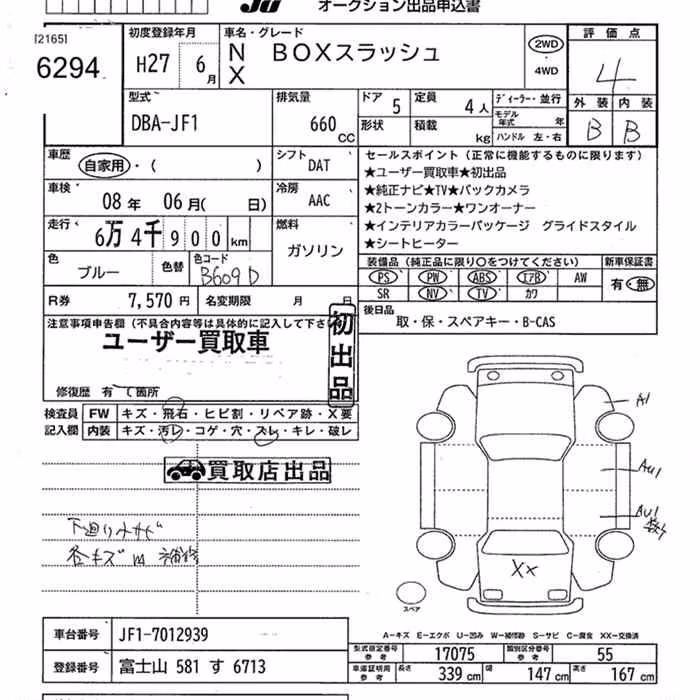 Ju オークション出品申込書
[2165]
6294
初度登録年月
H27 6月
車名・グレード
N BOXスラッシュ
X
2WD
・
4WD
評価点
4
外装 内装
B B
型式
DBA-JF1
排気量
660 CC
ドア 5
形状
定員 4人
積載 kg
ディーラー・並行
モデル年式 年
ハンドル 左・右
車歴
自家用・( )
シフト DAT
車検
08年 06月( 日)
冷房 AAC
走行
6万4千900km
燃料
ガソリン
色
ブルー
色替
色コード
B609D
R券 7,570円 名変期限 月 日
セールスポイント (正常に機能するものに限ります)
★ユーザー買取車★初出品
★純正ナビ★TV★バックカメラ
★2トーンカラー★ワンオーナー
★インテリアカラーパッケージ グライドスタイル
★シートヒーター
装備品 (純正品に限り〇をつけてください) 新車保証書
PS PW ABS エアB AW 有・無
SR NV TV カワ
後日品
取・保・スペアキー・B-CAS
注意事項申告欄(不具合内容等は具体的に記入して下さい
ユーザー買取車
初出品
修復歴 有 て箇所
検査員 FW キズ・飛石・ヒビ割・リペア跡・X要
記入欄 内装 キズ・汚レ・コゲ・穴・スレ・キレ・破レ
買取店出品
下廻り小サビ
各キズ凹
A1
AU1
AU1
XX
スペア
A-キズ E-エクボ U-凹み W-補修跡 S-サビ C-腐食 XX-交換済
車台番号 JF1-7012939
登録番号 富士山 581 す 6713
型式指定番号 参考 17075 類別区分番号 参考 55
車庫証明用 参考 長さ 339cm 幅 147cm 高さ 167cm